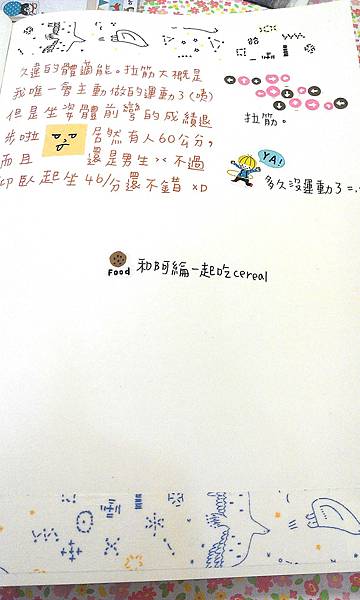 久違的體適能。拉筋大概是
我唯一會主動做的運動了(咦)
但是坐姿體前彎的成績退
步啦 居然有人60公分,
而且 還是男生>< 不過
仰臥起坐46/分還不錯 xD
拉筋。
YA!
多久沒運動了=.=
Food 和阿綸一起吃cereal